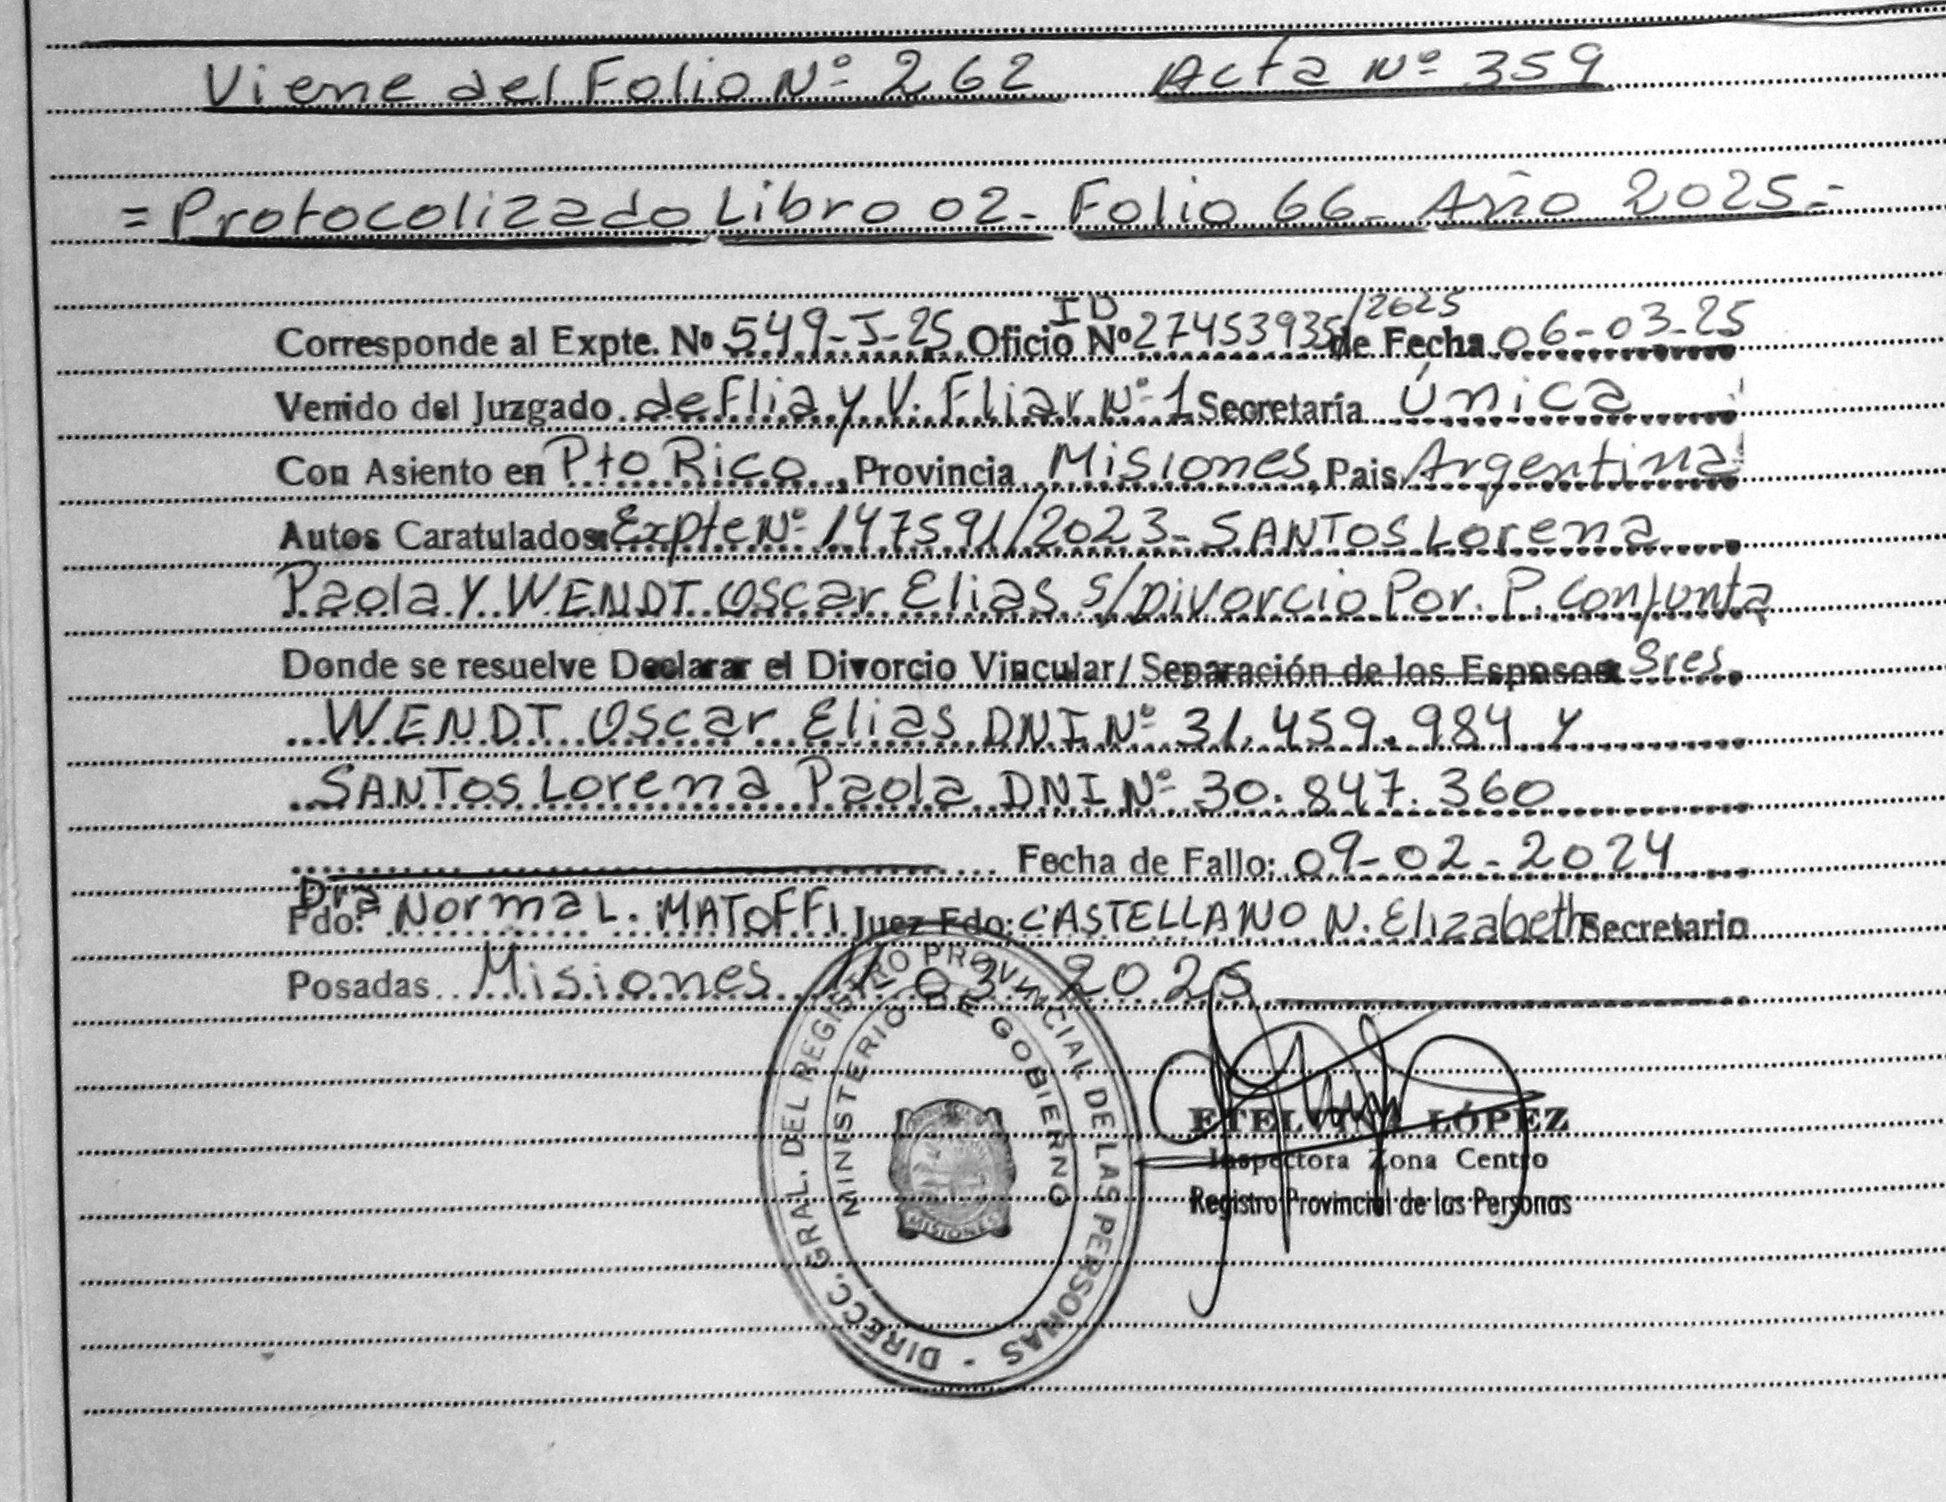 Viene del Folio Nº 262 Acta Nº 359
= Protocolizado Libro 02- Folio 66- Año 2025.=
Corresponde al Expte. Nº 549-J-25 Oficio ID Nº 27453935/2025 de Fecha 06-03-25
Venido del Juzgado de Flia y V. Fliar Nº 1 Secretaría Única
Con Asiento en Pto Rico, Provincia Misiones, Pais Argentina
Autos Caratulados: Expte Nº 147591/2023- SANTOS Lorena
Paola Y WENDT Oscar Elias s/Divorcio Por. P. Conjunta
Donde se resuelve Declarar el Divorcio Vincular/ Separación de los Esposos Sres.
WENDT Oscar Elias DNI Nº 31.459.984 Y
SANTOS Lorena Paola DNI Nº 30.847.360
Fecha de Fallo: 09-02-2024
Fdo: Dra Norma L. MATOFFI Juez Fdo: CASTELLANO N. Elizabeth Secretario
Posadas Misiones 11 03 2025
DIRECC. GRAL. DEL REGISTRO PROVINCIAL DE LAS PERSONAS -
MINISTERIO DE GOBIERNO
MISIONES
ETELVINA LÓPEZ
Inspectora Zona Centro
Registro Provincial de las Personas